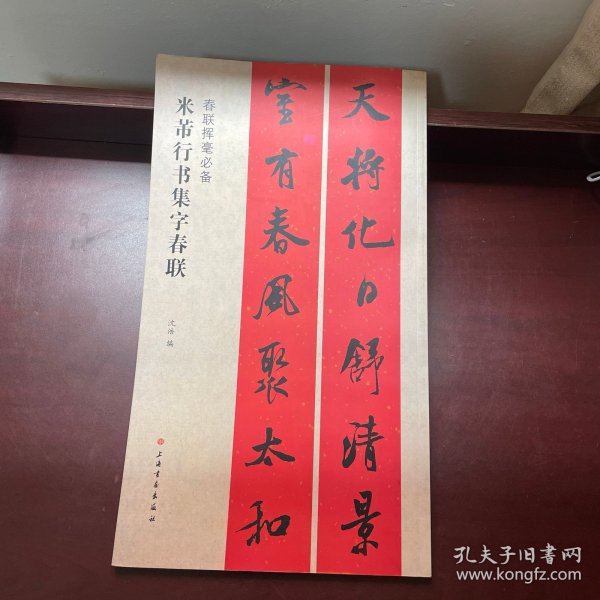 天将化日舒清景
堂有春风聚太和
春联挥毫必备
米芾行书集字春联
沈浩 编
上海书画出版社
孔夫子旧书网
www.kongfz.com